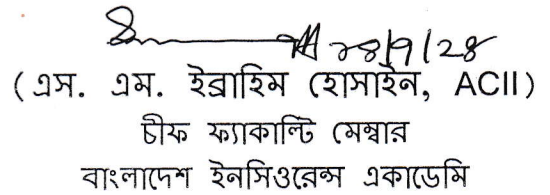 ২৪/৭/২৪
( এস. এম. ইব্রাহিম হোসাইন, ACII )
চীফ ফ্যাকাল্টি মেম্বার
বাংলাদেশ ইনসিওরেন্স একাডেমি